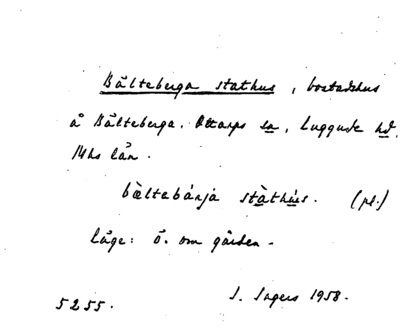 Bälteberga stathus, bostadshus
å Bälteberga. Ottarps sn, Luggude hd.
Mhs län.
bæ̀ltəbárja stàthús. (pl.)
läge: ö. om gården.
S. Ingers 1958.
5255.